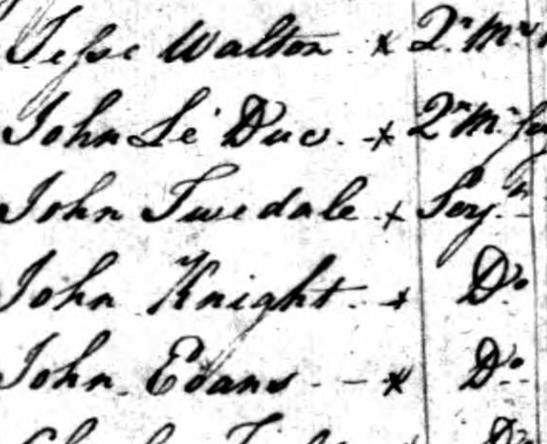 Jesse Walton × Qr. Mr.
John Le Duc. × Qr. Mr.
John Twedale × Serj.
John Knight × Do.
John Evans × Do.
Do.